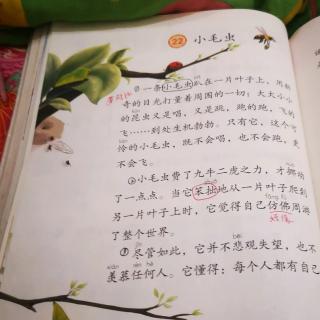 22 小毛虫
①一条小毛虫趴在一片叶子上,用新
奇的目光打量着周围的一切:大大小小
的昆虫又是唱,又是跳,跑的跑,飞的
飞……到处生机勃勃。只有它,这个可
怜的小毛虫,既不会唱,也不会跑,更
不会飞。
nuó
②小毛虫费了九牛二虎之力,才挪动
zhuō
了一点点。当它笨拙地从一片叶子爬到
fǎng fú
另一片叶子上时,它觉得自己仿佛周游
好像
了整个世界。
bēi
③尽管如此,它并不悲观失望,也不
xiàn rèn hé
羡慕任何人。它懂得:每个人都有自己